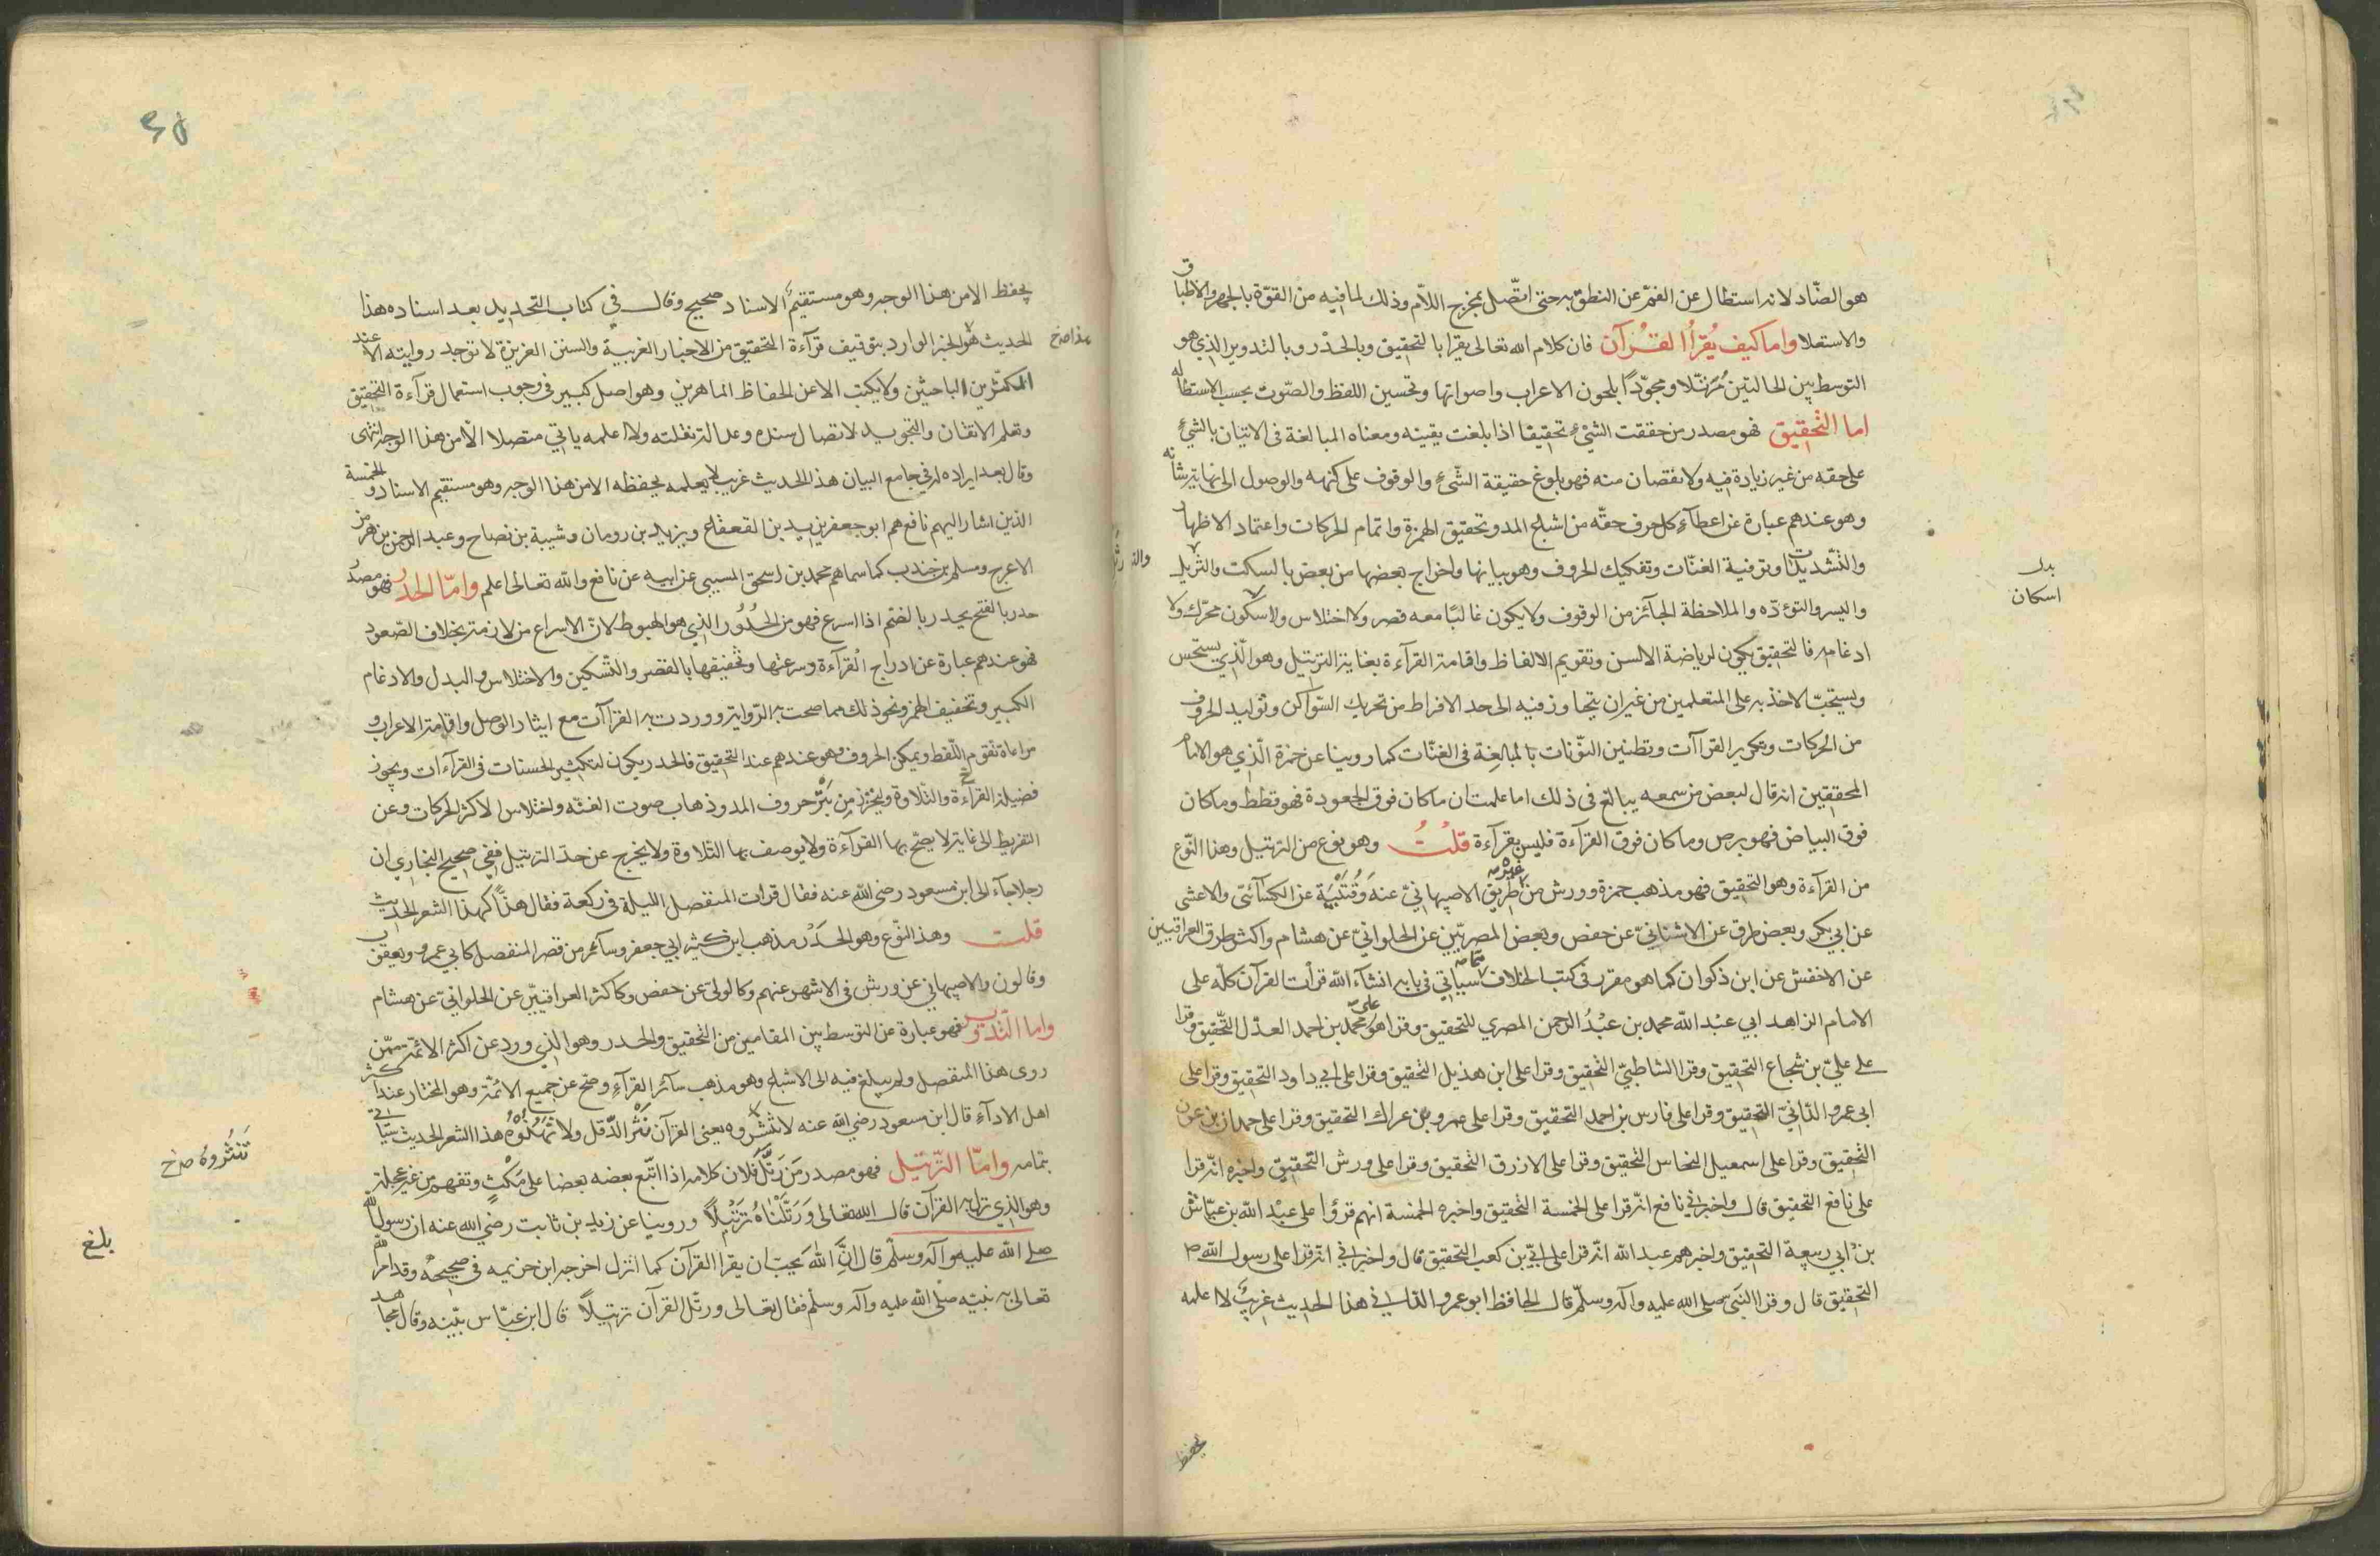 هو الضّاد لانه استطال عن الفم عن النطق به حتى اتّصل بمخرج اللّام وذلك لما فيه من القوّة بالجهر والاطباق
والاستعلا واما كيف يُقرأُ القُرآن فان كلام الله تعالى يقرا بالتحقيق وبالحدْر وبالتدوير الذي هو
التوسط بين الحالتين مُرَتّلا ومجوّدًا بلحون الاعراب واصواتها وتحسين اللفظ والصّوت بحسب الاستطاله
اما التَّحقِيق فهو مصدر من حققت الشيْء تحقيقًا اذا بلغت يقينه ومعناه المبالغة فى الاتيان بالشيْء
على حقه من غير زيادة فيه ولا نقصان منه فهو بلوغ حقيقة الشّىء والوقوف على كنهه والوصول الى نهاية شانه
وهو عندهم عبارة عن اعطآء كل حرف حقّه من اشباع المد وتحقيق الهمزة واتمام الحركات واعتماد الاظهار
والتّشديدات وتوفية الغنّات وتفكيك الحروف وهو بيانها واخراج بعضها من بعض بالسكت والترتيل
واليسر والتوءدّه والملاحظة الجآئز من الوقوف ولا يكون غالبًا معه قصر ولا اختلاس ولا سكون محرّك ولا
بدل
اسكان
ادغامه فالتحقيق يكون لرياضة الالسن وتقويم الالفاظ واقامة القرآءة بغاية الترتيل وهو الّذي يستحسن
ويستحبّ الاخذ به على المتعلمين من غير ان يتجاوز فيه الى حد الافراط من تحريك السّواكن وتوليد الحروف
من الحركات وتكرير القراآت وتطنين النوّنات بالمبالغة فى الغنّات كما روينا عن حمزة الّذي هو الامام
المحققين انه قال لبعض من سمعه يبالغ فى ذلك اما علمت ان ما كان فوق الجعودة فهو قطط وما كان
فوق البياض فهو برص وما كان فوق القرآءة فليس بقرآءة قلتُ وهو نوع من الترتيل وهذا النّوع
من القرآءة وهو التحقيق فهو مذهب حمزة وورش من غير طريق الاصبهانيّ عنه وَقُتَيْبَة عن الكسآئىّ والاعشى
عن ابي بكر وبعض طرق عن الاشنانيّ عن حفص وبعض المصريّين عن الحلوانيّ عن هشام واكثر طرق العراقيين
عن الاخفش عن ابن ذكوان كما هو مقرر فى كتب الخلاف مما سياتي فى بابه انشآء الله قرأت القرآن كلّه على
الامام الزاهد ابي عبْد الله محمد بن عبْدُ الرحمن المصري للتحقيق وقرا هو على محمد بن احمد العدّل التّحقيق وقرا
على عليّ بن شجاع التحقيق وقرا الشاطبيّ التَّحقِيق وقرا على ابن هذيل التّحقيق وقرا على ابي داود التحقيق وقرا على
ابى عمرو الدّانيّ التحقيق وقرا على فارس بن احمد التحقيق وقرا على عمرو بن عراك التحقيق وقرا على حمدان بن عون
التّحقيق وقرا على اسمعيل النحاس التّحقيق وقرا على الازرق التّحقيق وقرا على ورش التّحقيق واخبره انّه قرا
على نافع التحقيق قال واخبرني نافع انّه قرا على الخمسة التّحقيق واخبره الخمسة انهم قرؤا على عبْد الله بن عيّاش
بن ابي ربيعة التحقيق واخبرهم عبد الله انّه قرا على ابيّ بن كعب التحقيق قال واخبراني انّه قرا على رسول الله ص
التّحقيق قال وقرا النّبي صلى الله عليه وآله وسلّم قال الحافظ ابو عمرو الدّاني هذا الحديث غريبٌ لا اعلمه
يحفظ
٤٥
يحفظ الا من هذا الوجه وهو مستقيم الاسناد صحيح وقال في كتاب التجديد بعد اسناده هذا
الحديث هو الخبر الوارد بتوقيف قرآءة التحقيق من الاخبار الغريبة والسنن العزيزة لا توجد روايته الا عند
هذا صخ
المكثّرين الباحثين ولا يكتب الا عن الحفاظ الماهرين وهو اصل كبير فى وجوب استعمال قرآءة التحقيق
وتعلم الاتقان والتجويد لاتصال سنده وعدالة نقلته ولا اعلمه ياتي متصلا الّا من هذا الوجه انتهى
وقال بعد ايراده له في جامع البيان هذا الحديث غريب لا يعلمه يحفظه الا من هذا الوجه وهو مستقيم الاسناد والخمسة
الذين اشار اليهم نافع هم ابو جعفر يزيد بن القعقاع ويزيد بن رومان وشيبة بن نصاح وعبد الرحمن بن هرمز
الاعرج ومسلم بن جندب كما سماهم محمد بن اسحق المسيبى عن ابيه عن نافع والله تعالى اعلم وامّا الحدْر فهو مصدر
حدر بالفتح يحدر بالضّم اذا اسرع فهو من الحُدُور الذي هو الهبوط لانّ الاسراع من لازمته بخلاف الصّعود
فهو عندهم عبارة عن ادراج القرآءة وسرعتها وتخفيفها بالقصر والتّسكين والاختلاس والبدل والادغام
الكبير وتخفيف الهمز ونحو ذلك مما صحت به الرّواية ووردت به القراآت مع ايثار الوصل واقامة الاعراب و
مراعاة تقوم اللّفظ ويمكن الحروف وهو عندهم عند التحقيق فالحدر يكون لتكثير الحسنات فى القرآءات ويحوز
فضيلة القرآءة والتّلاوة وليحترز من بَتْر حروف المد وذهاب صوت الغنّه واختلاس الاكثر الحركات وعن
التفريط الى غاية لا يصحّ بها القرآءة ولا يوصف بها التّلاوة ولا يخرج عن حدّ الترتيل ففي صحيح البخاري ان
رجلا جآء الى ابن مسعود رضي الله عنه فقال قرات المفصل الليلة فى ركعة فقال هذًّا كهذّ الشعر الحديث
قلت وهذا النوّع وهو الحَدْر مذهب ابن كثير ابي جعفر وسآئر من قصر المنفصل كابي عمرو ويعقوب
وقالون والاصبهاني عن ورش فى الاشهر عنهم وكالولىّ عن حفص وكاكثر العراقييّن عن الحلوانيّ عن هشام
واما التّدوير فهو عبارة عن التوسط بين المقامين من التّحقيق والحدر وهو الّذي ورد عن اكثر الائمّة ممّن
روى هذا المنفصل ولم يبلغ فيه الى الاشباع وهو مذهب سآئر القرآء وصح عن جميع الائمّة وهو المختار عند اكثر
اهل الادآء قال ابن مسعود رضي الله عنه لا تنثروه يعنى القرآن نَثْر الدّقل ولا تهذّوه هذا الشعر الحديث سياتي
تَنثُروهُ صخ
بتمامه وامّا التّرتيل فهو مصدر من رَتَّلَ فلان كلامه اذا اتبّع بعضه بعضا على مَكْثٍ وتفهم من غير عجلة
وهو الّذي نزل به القرآن قال الله تعالى وَرَتَّلْنَاهُ تَرْتِيْلًا وروينا عن زيد بن ثابت رضي الله عنه ان رسول الله
صلى الله عليه وآله وسلّم قال انَّ اللهَ يَحبّ ان يقرا القرآن كما انزل اخرجه ابن خزيمه فى صحيحه وقد امر الله
بلغ
تعالى به نبيّه صلى الله عليه وآله وسلّم فقال تعالى ورتّل القرآن ترتيلًا قال ابن عبّاس بيّنه وقال مجاهد